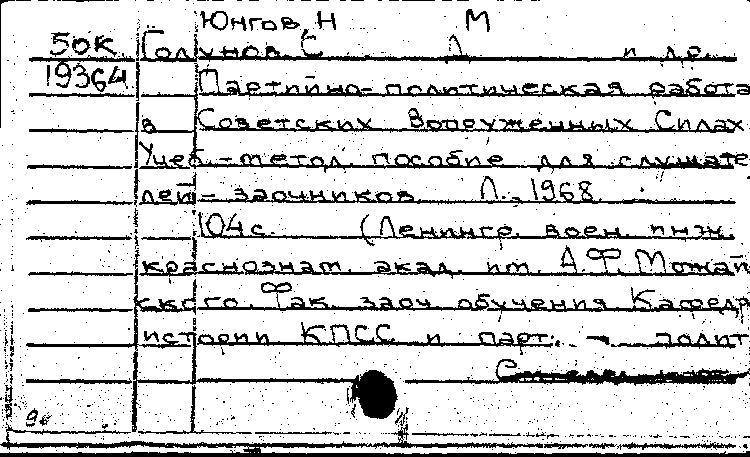 Юнгов, Н М
50К Голунов, С Л и др.
19364 Партийно-политическая работа
в Советских Вооруженных Силах
Учеб.-метод. пособие для слушате
лей-заочников. Л., 1968.
104 с. (Ленингр. воен. инж.
краснознам. акад. им. А.Ф. Можай
ского. Фак. заоч. обучения Кафедр
истории КПСС и парт. - полит